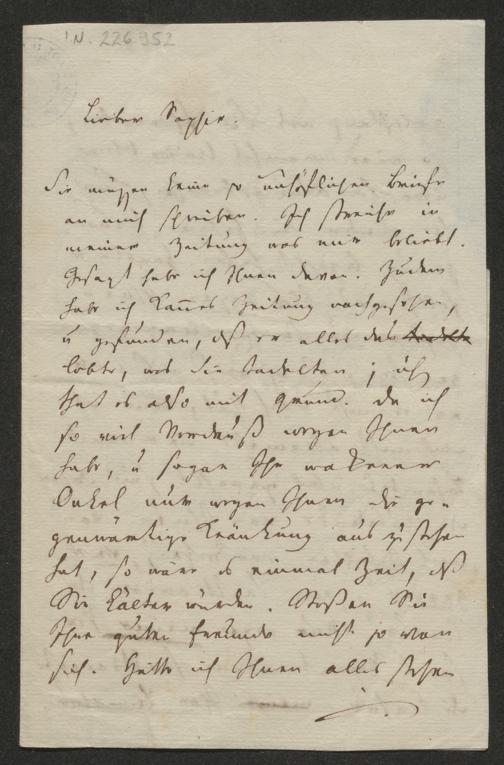 IN. 226.952
Lieber Saphir.
Sie müssen keine so unhöflichen Briefe
an mich schreiben. Ich streiche in
meiner Zeitung was mir beliebt.
Gesagt habe ich Ihnen davon. Zudem
habe ich Zeitung nachgesehen,
u gefunden, daß er alles das tadelte
lobte, was Sie tadelten; ich
that es also mit Grund. Da ich
so viel Verdruß wegen Ihnen
habe, u sogar Ihr wackerer
Onkel nur wegen Ihnen die ge-
genwärtige Kränkung auszustehen
hat, so wäre es einmal Zeit, daß
Sie kälter würden. Stoßen Sie
Ihre guten Freunde nicht so von
sich. Hätte ich Ihnen alles stehen